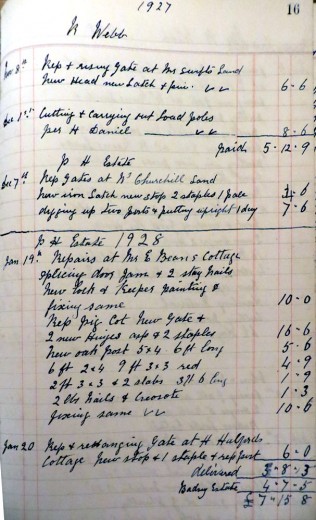 1927 16
Webb
Nov 8th Rep & rising gate at Mr Swifts Land
New Head new Latch & pin 6-6
Dec 1st Cutting & Carrying out Load poles
per H Daniel 8-6
paid 5-12-9
P H Estate
Dec 7th Rep gates at Churchill Land
New iron Latch new stop 2 staples 1 pale -6
digging up two posts & putting upright 1 day 7-6
P H Estate 1928
Jan 19th Repairs at Mrs E Beans Cottage
Splicing door Jamb & 2 stay nails
New Lock & Keeper painting &
fixing same 10-0
Rep Pig Cot New Gate &
2 new Hinges asp & 2 staples 16-6
New oak post 5x4 6ft long 5-6
6ft 2x4 9ft 3x3 red 4-9
2ft 3x3 & 2 slabs 3ft 6 long 1-9
2 lbs Nails & Creosote 1-3
fixing same 10-6
Jan 20 Rep & rehanging gate at H Hulfords
Cottage New stop & 1 staple & rep post 6-0
delivered 3-8-3
Estate 4-7-5
£7-15 8